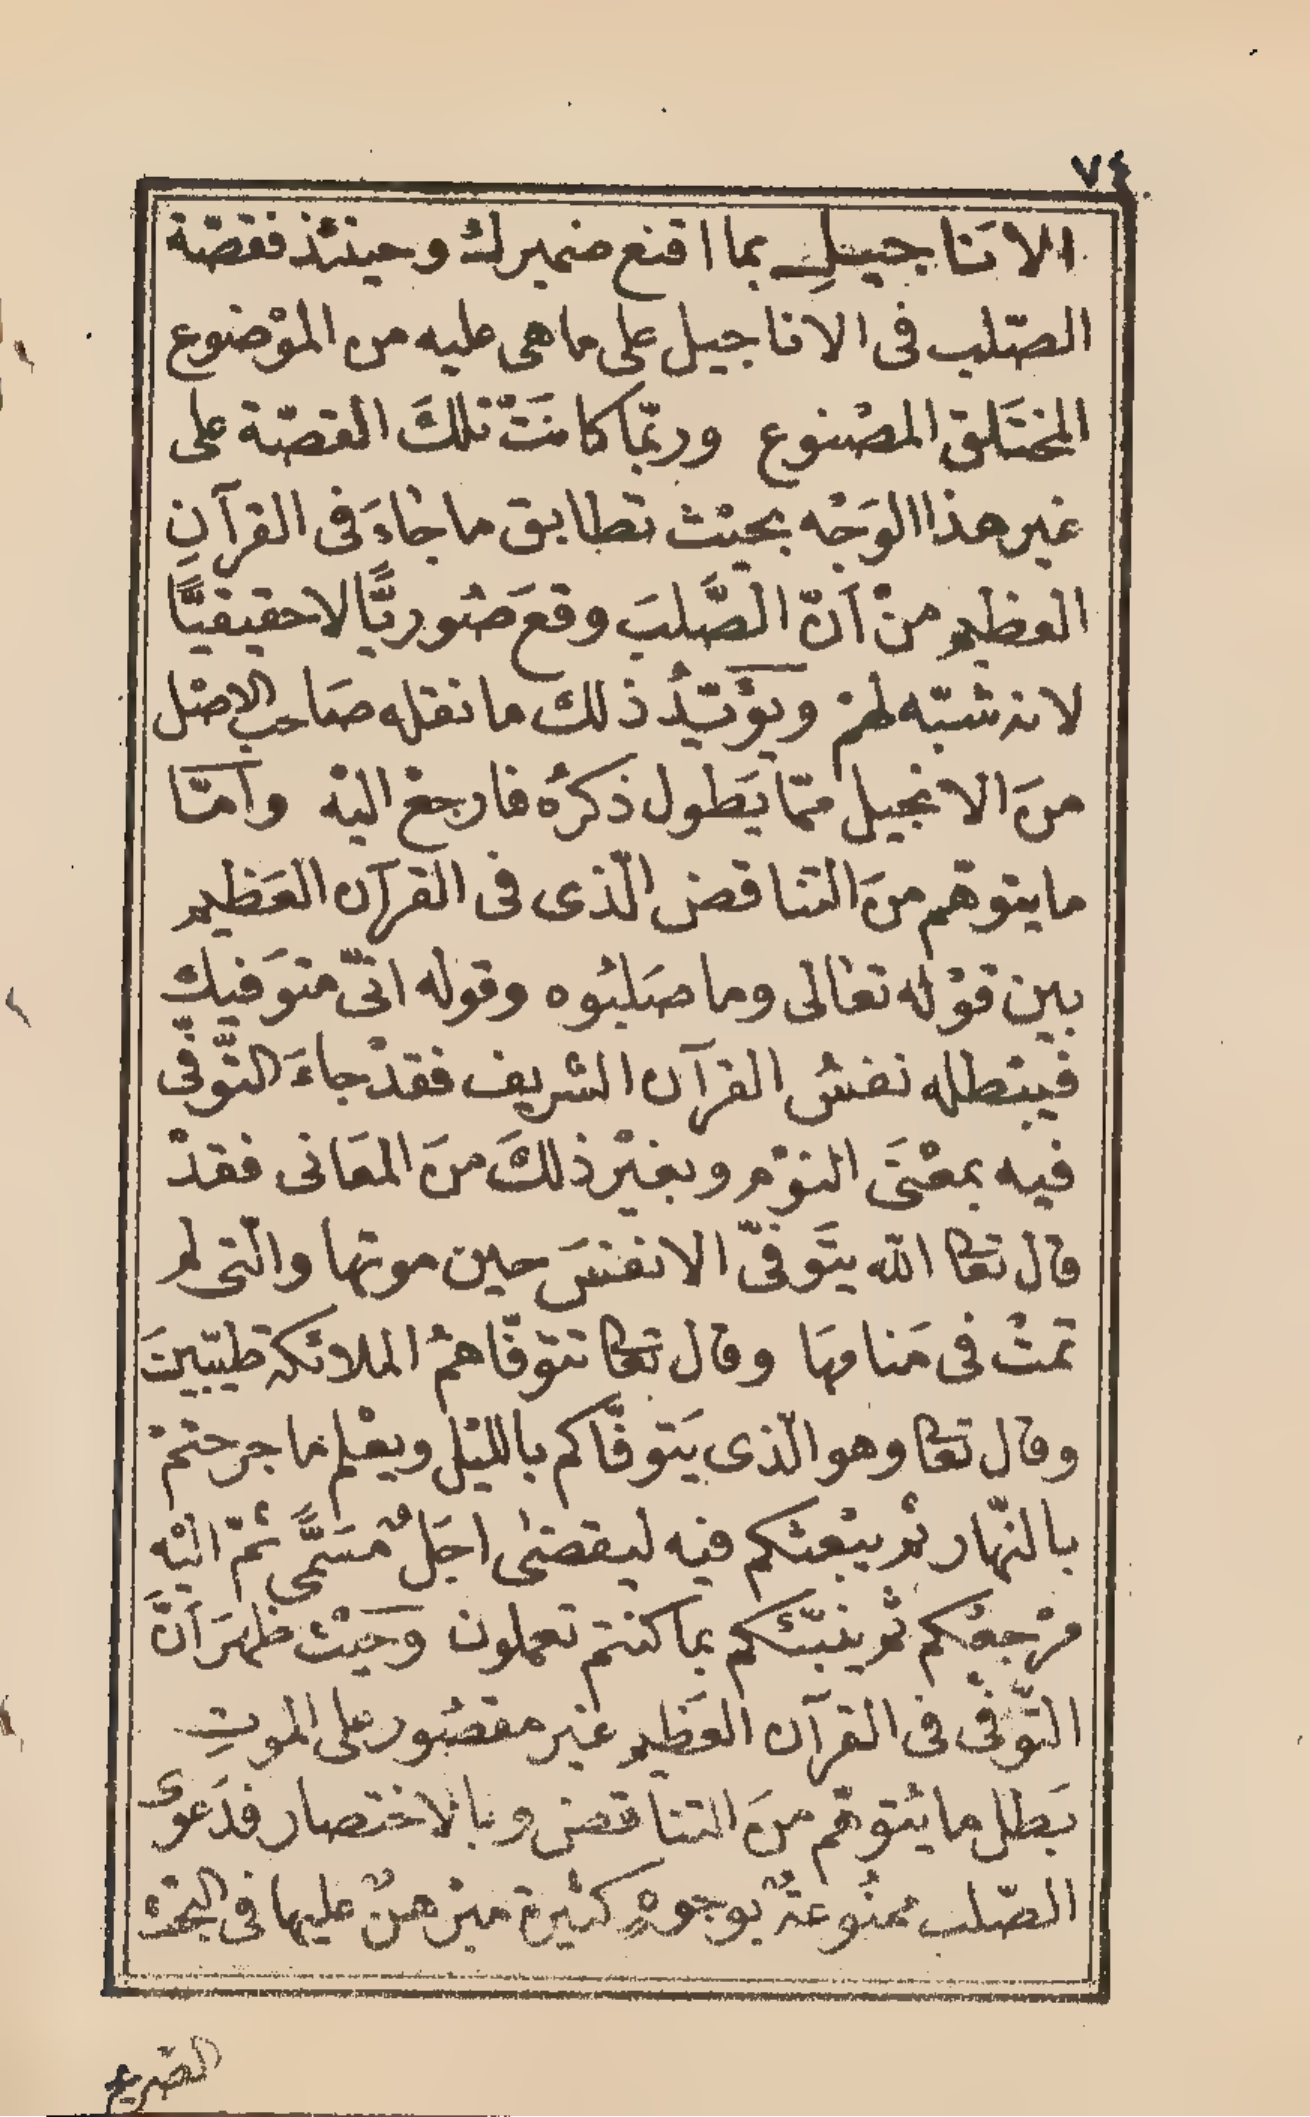 ٧٤
الاناجيلِ بما اقنع ضميرك وحينئذ فقصّة
الصّلب فى الاناجيل على ما هى عليه من الموْضوع
المختَلق المصْنوع وربّما كانَتْ تلكَ القصّة على
غير هذا الوَجْه بحيْث تطابق ما جَاءَ فى القرآنِ
العظيم منْ اَنّ الصَّلبَ وقعَ صُوريًّا لا حقيقيًّا
لانه شبّه لهمْ ويؤيّدُ ذلك ما نقله صَاحب الاصْل
منَ الانجيل ممّا يَطول ذكرُه فارجعْ اليْه وامّا
ما يتوهّم منَ التناقض الّذى فى القرآن العَظيم
بين قوْله تعَالى وما صَلبُوه وقوله انّى متوَفيك
فيبْطله نفسُ القرآن الشريف فقدْ جاءَ التَّوفّى
فيه بمعْنَى النوْم وبغيْر ذلكَ منَ المعَانى فقدْ
قال تعا الله يتَوفّى الانفسَ حين موتها والّتى لم
تمتْ فى مَنامهَا وقال تعا تتوفّاهمُ الملائكة طيّبينَ
وقال تعا وهو الّذى يَتوفّاكم بالليْل ويعْلم ما جرحتمْ
بالنّهار ثم يبْعثكم فيه ليقضٰى اجَلٌ مسَمًّى ثمّ اليْه
مرْجعُكم ثم ينبّئكم بما كنتم تعملون وحَيْث ظهرَ اَنَّ
التّوفّى فى القرآن العَظيم غير مقصُور على الموتِ
بَطل ما يُتوهّم منَ التناقض وبالاختصار فدَعوى
الصّلب ممنُوعةٌ بوجوهٍ كثيرة مبرْهنٌ عليها فى البحْث
الصّريح